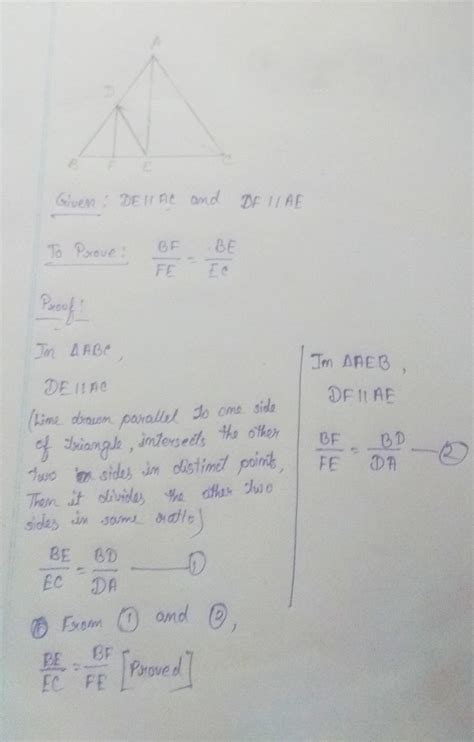 A
D
B F E C
Given: DE∥AC and DF∥AE
To Prove: BF/FE = BE/EC
Proof:
In ΔABC,
DE∥AC
(Line drawn parallel to one side
of triangle, intersects the other
two sides in distinct points,
Then it divides the other two
sides in same ratio)
BE/EC = BD/DA — ①
From ① and ②,
BE/EC = BF/FE [Proved]
In ΔAEB,
DF∥AE
BF/FE = BD/DA — ②